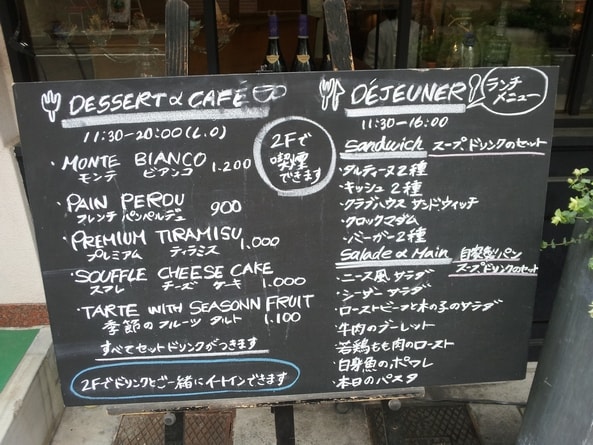 DESSERT & CAFÉ
11:30-20:00 (L.O)
2Fで
喫煙
できます
・MONTE BIANCO 1.200
モンテ ビアンコ
・PAIN PERDU 900
フレンチ パンペルデュ
・PREMIUM TIRAMISU 1,000
プレミアム ティラミス
・SOUFFLE CHEESE CAKE 1.000
スフレ チーズ ケーキ
・TARTE WITH SEASONN FRUIT 1.100
季節の フルーツ タルト
すべてセットドリンクがつきます
2Fでドリンクとご一緒にイートインできます
DÉJEUNER
ランチ
メニュー
11:30-16:00
Sandwich スープドリンクのセット
・タルティーヌ2種
・キッシュ2種
・クラブハウス サンドウィッチ
・クロックマダム
・バーガー2種
Salade & Main 自家製パン
スープドリンクのセット
・ニース風 サラダ
・シーザー サラダ
・ローストビーフと木の子のサラダ
・牛肉のブーレット
・若鶏もも肉のロースト
・白身魚のポワレ
・本日のパスタ